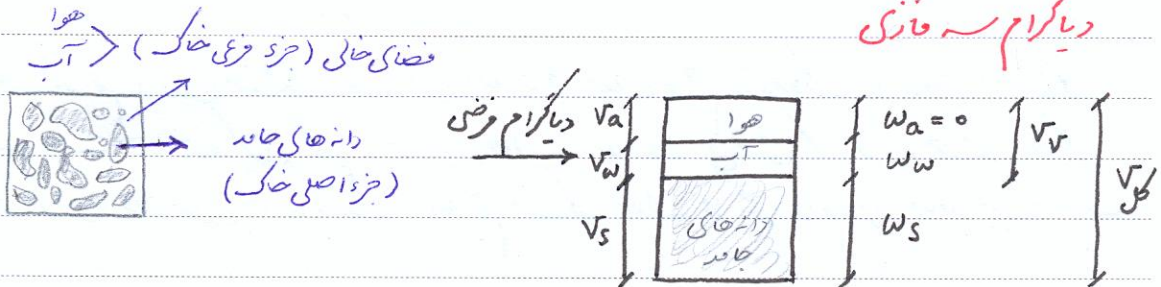 دیاگرام سه فازی
فضای خالی (جزء فرعی خاک) < هوا آب
دانه های جامد
(جزء اصلی خاک)
دیاگرام فرضی
Va
Vw
Vs
هوا
آب
دانه های
جامد
ωa = 0
ωw
ωs
Vv
V کل